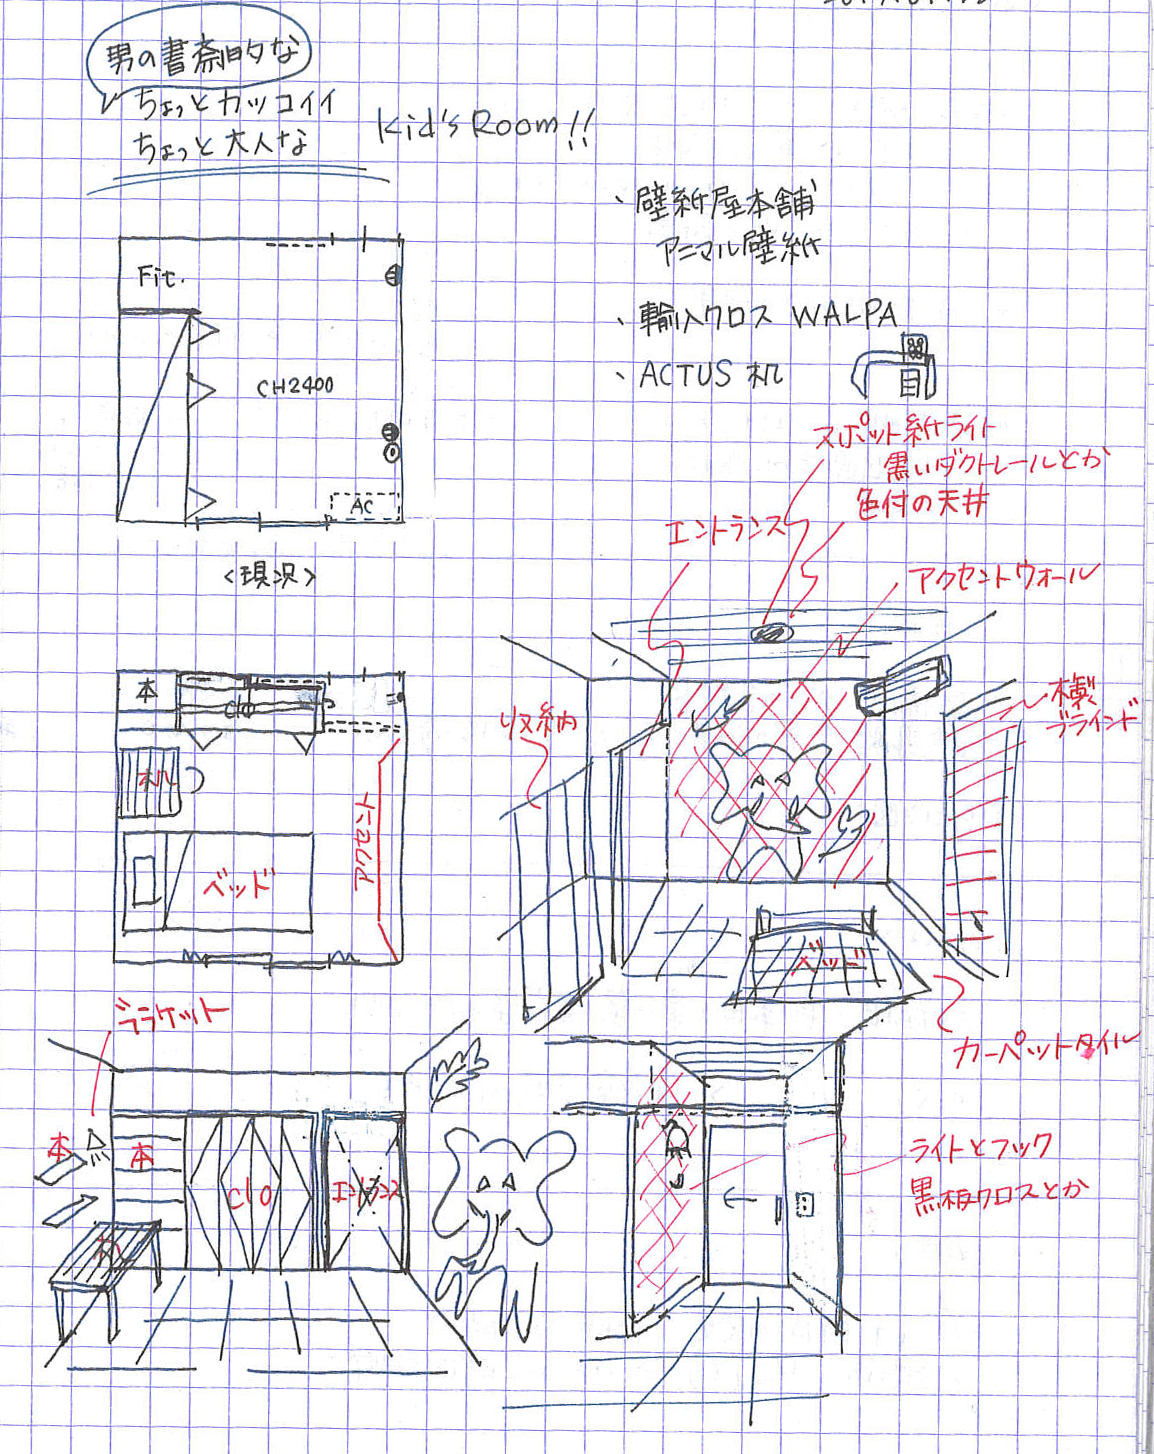 男の書斎的な
ちょっとカッコイイ
ちょっと大人な
Kid's Room!!
、壁紙屋本舗
アニマル壁紙
、輸入クロス WALPA
、ACTUS 机
Fit.
CH2400
AC
<現況>
スポット紙ライト
黒いダクトレールとか
色付の天井
エントランス
アクセントウォール
収納
木製
ブラインド
ベッド
カーペットタイル
本
clo
机
ベッド
アクセント
ブラケット
本
本
clo
エントランス
机
ライトとフック
黒板クロスとか